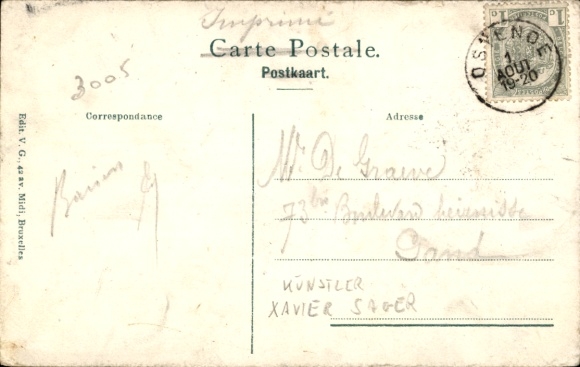 Imprimé
Carte Postale.
Postkaart.
1 C 1 C
OSTENDE
1
AOUT
19-20
3005
Correspondance
Adresse
Edit. V. G., 42 av. Midi, Bruxelles
Mr. De Graeve
73 bis Boulevard
Gand
KÜNSTLER
XAVIER SAGER